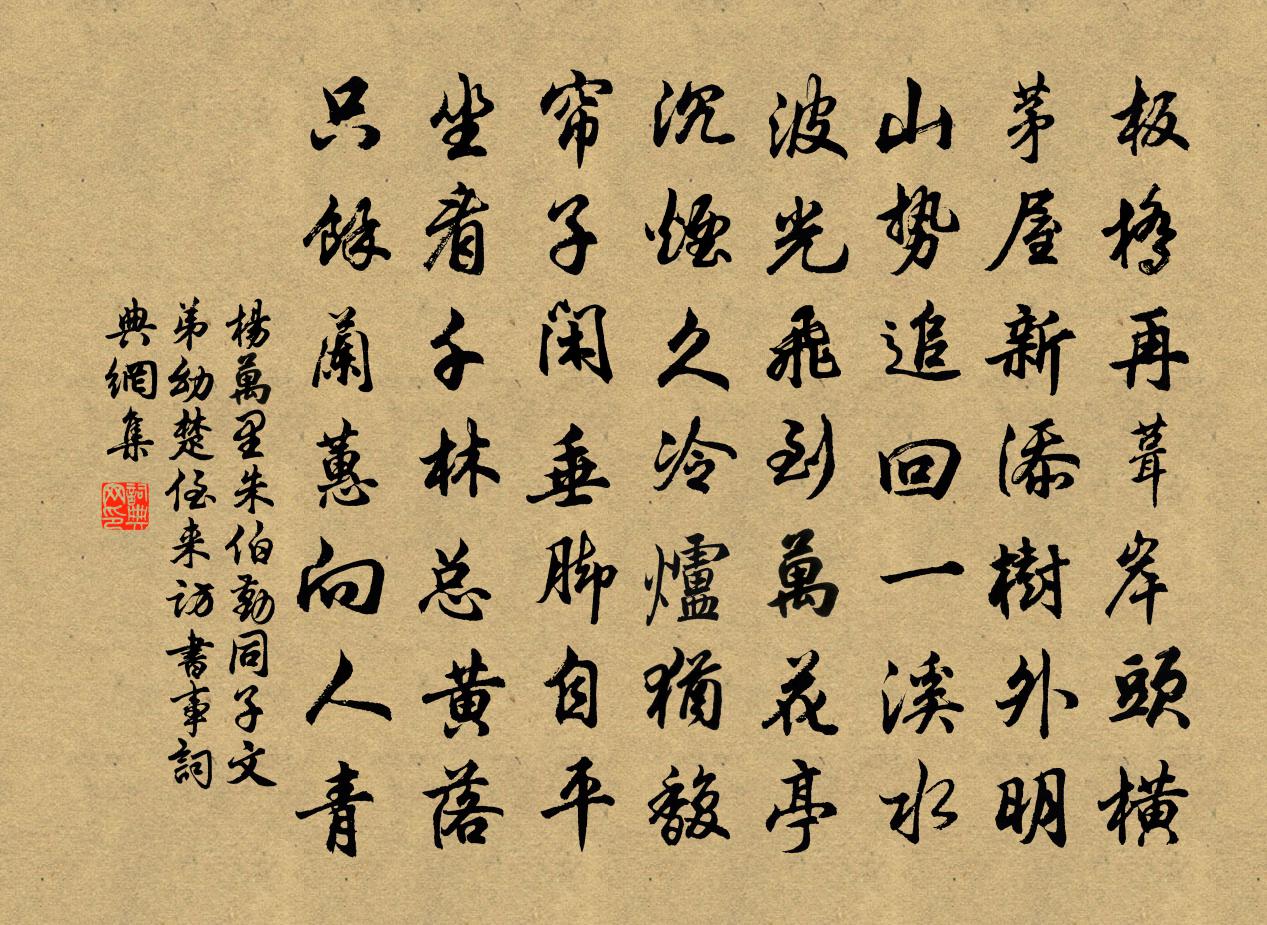 板橋再葺岸頭橫
茅屋新添樹外明
山势追回一溪水
波光飛到萬花亭
沉煙久冷爐猶馥
帘子閑垂脚自平
坐看千林总黄落
只餘蘭蕙向人青
楊萬里朱伯勤同子文
弟幼楚侄来访書事詞
典網集
詞典
网印